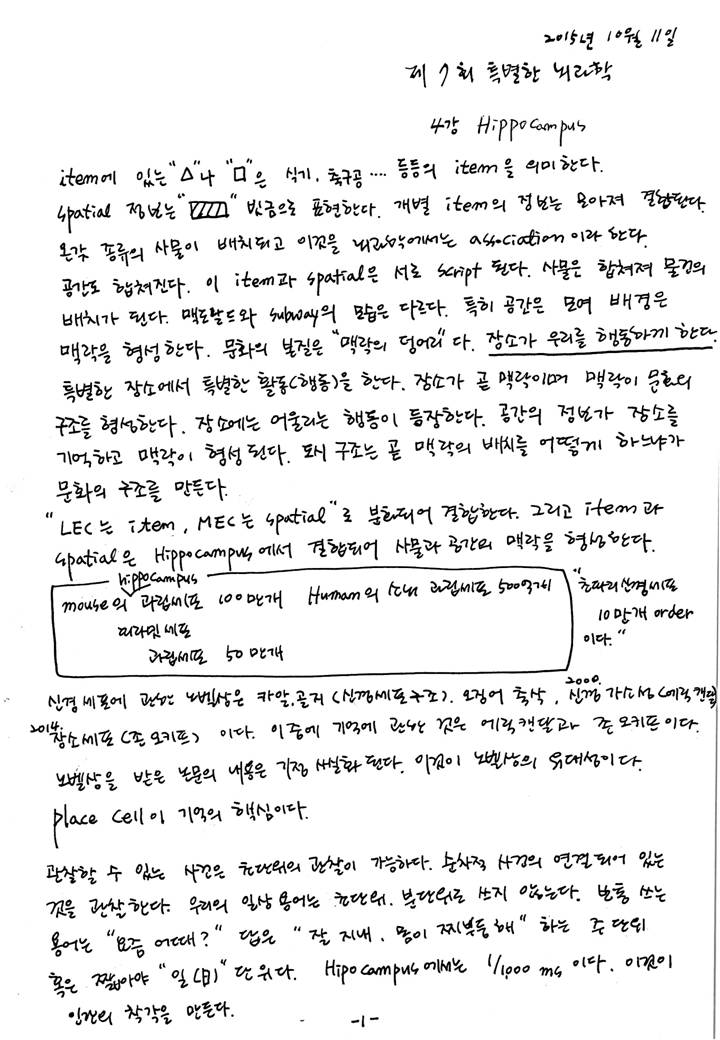 2015년 10월 11일
제 7회 특별한 뇌과학
4강 Hippocampus
item에 있는 "△"나 "□"은 식기, 축구공 .... 등등의 item을 의미한다.
spatial 정보는 "▨" 빗금으로 표현한다. 개별 item의 정보는 모아져 결합된다.
온갖 종류의 사물이 배치되고 이것을 뇌과학에서는 association이라 한다.
공간도 합쳐진다. 이 item과 spatial은 서로 script 된다. 사물은 합쳐져 물건의
배치가 된다. 맥도날드와 subway의 모습은 다르다. 특히 공간은 모여 배경은
맥락을 형성한다. 문화의 본질은 "맥락의 덩어리"다. 장소가 우리를 행동하게 한다.
특별한 장소에서 특별한 활동(행동)을 한다. 장소가 곧 맥락이며 맥락이 문화의
구조를 형성한다. 장소에는 어울리는 행동이 등장한다. 공간의 정보가 장소를
기억하고 맥락이 형성된다. 도시 구조는 곧 맥락의 배치를 어떻게 하느냐가
문화의 구조를 만든다.
"LEC는 item, MEC는 spatial"로 분화되어 결합한다. 그리고 item과
spatial은 Hippocampus에서 결합되어 사물과 공간의 맥락을 형성한다.
hippocampus
mouse의 과립세포 100만개 Human의 소뇌 과립세포 500억개
피라밋세포
과립세포 50만개
"초파리신경세포
10만개 order
이다."
신경세포에 관한 노벨상은 카할.골지 (신경세포구조). 오징어 축삭, 2000. 신경가소성(에릭캔달)
2014. 장소세포(존오키프) 이다. 이중에 기억에 관한 것은 에릭캔달과 존오키프이다.
노벨상을 받은 논문의 내용은 기정 사실화 된다. 이것이 노벨상의 위대성이다.
place cell이 기억의 핵심이다.
관찰할 수 있는 사건은 초단위의 관찰이 가능하다. 순차적 사건의 연결되어 있는
것을 관찰한다. 우리의 일상 용어는 초단위, 분단위로 쓰지 않는다. 보통 쓰는
용어는 "요즘 어때?" 답은 "잘 지내, 몸이 찌부등해" 하는 주 단위
혹은 짧아야 "일(日)"단위다. Hipocampus에서는 1/1,000 ms 이다. 이것이
인간의 착각을 만든다.
-1-